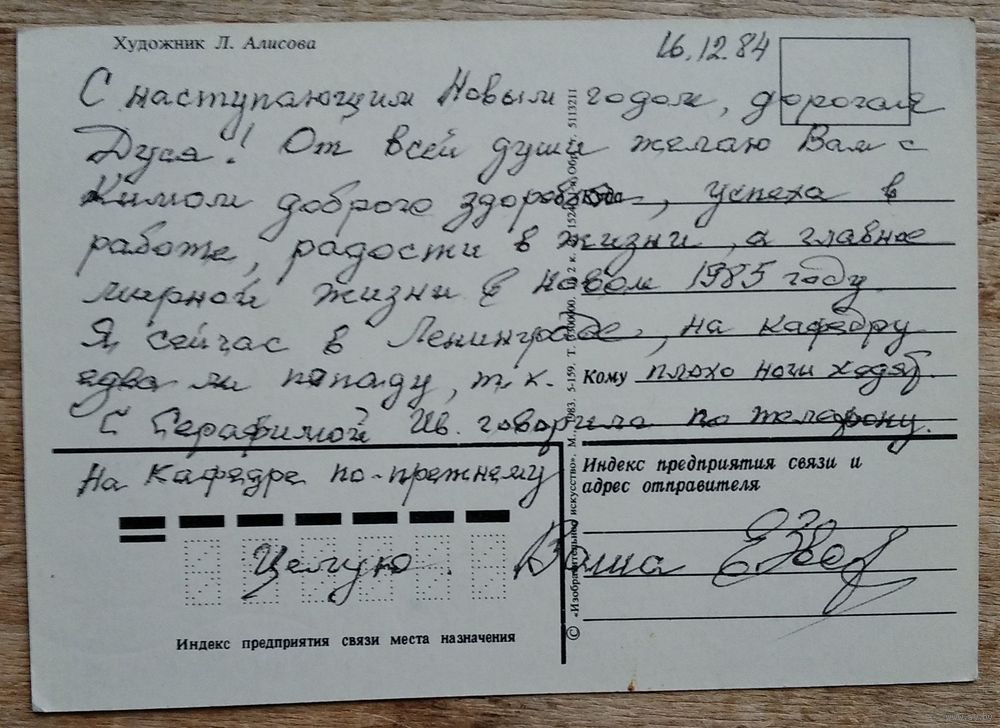 Художник Л. Алисова
16.12.84
С наступающим Новым годом, дорогая
Дуся! От всей души желаю Вам с
Кимом доброго здоровья, успеха в
работе, радости в жизни, а главное
мирной жизни в новом 1985 году
Я сейчас в Ленинграде, на кафедру
едва ли попаду, т.к. плохо ноги ходят.
Кому
С Серафимой Ив. говорила по телефону.
На кафедре по-прежнему
Целую. Ваша
Индекс предприятия связи и
адрес отправителя
Индекс предприятия связи места назначения
© «Изобразительное искусство», М. 1983. 5-159. Т.
5113211